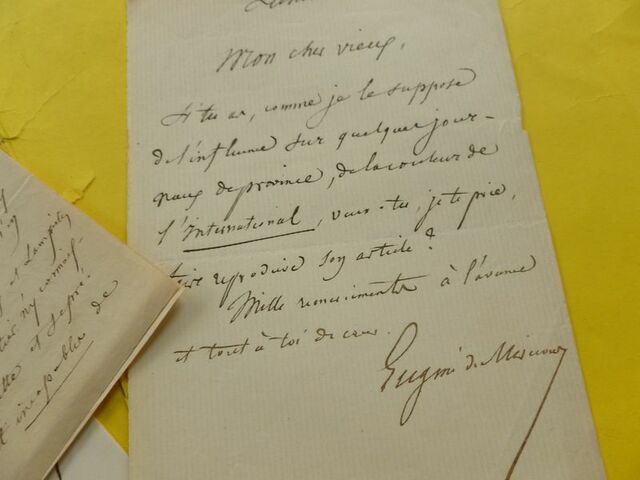 Mon cher vieux,
Si tu as, comme je le suppose
de l'influence sur quelques jour-
naux de province, de la couleur de
l'International, veux-tu, je te prie,
faire reproduire son article ?
Mille remerciements à l'avance
et tout à toi de cœur.
Eugène de Mirecourt
et
incapables de